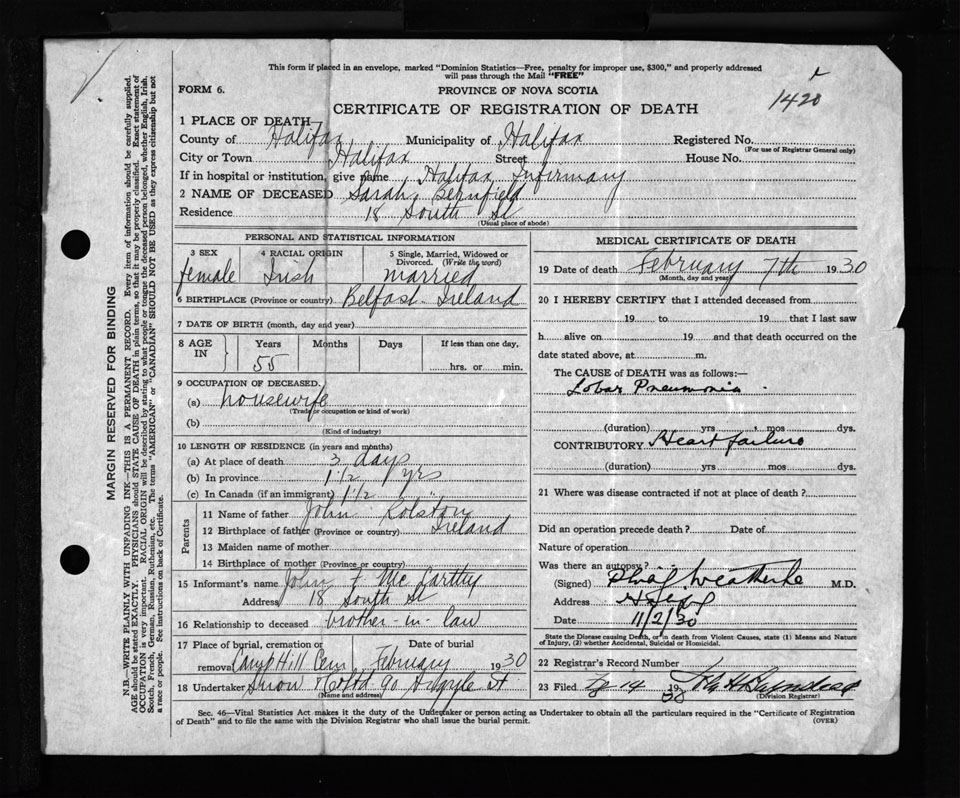 This form if placed in an envelope, marked "Dominion Statistics—Free, penalty for improper use, $300," and properly addressed
will pass through the Mail "FREE"
1420
FORM 6.
PROVINCE OF NOVA SCOTIA
CERTIFICATE OF REGISTRATION OF DEATH
1 PLACE OF DEATH
County of Halifax Municipality of Halifax Registered No.
(For use of Registrar General only)
City or Town Halifax Street House No.
If in hospital or institution, give name Halifax Infirmary
2 NAME OF DECEASED Sarah
Residence 18 South St
(Usual place of abode)
PERSONAL AND STATISTICAL INFORMATION
3 SEX 4 RACIAL ORIGIN 5 Single, Married, Widowed or Divorced. (Write the word)
female Irish married
6 BIRTHPLACE (Province or country) Belfast Ireland
7 DATE OF BIRTH (month, day and year)
8 AGE IN Years Months Days If less than one day,
55 hrs. or min.
9 OCCUPATION OF DECEASED.
(a) housewife
(Trade or occupation or kind of work)
(b)
(Kind of industry)
10 LENGTH OF RESIDENCE (in years and months)
(a) At place of death 3 days
(b) In province 1 1/2 yrs
(c) In Canada (if an immigrant) 1 1/2 "
Parents
11 Name of father John Rolston
12 Birthplace of father (Province or country) Ireland
13 Maiden name of mother
14 Birthplace of mother (Province or country)
15 Informant's name John F McCarthy
Address 18 South St
16 Relationship to deceased brother-in-law
17 Place of burial, cremation or removal Date of burial
Camp Hill Cem February 1930
18 Undertaker Snow & Co Ltd 90 Argyle St
MEDICAL CERTIFICATE OF DEATH
19 Date of death February 7th 1930
(Month, day and year)
20 I HEREBY CERTIFY that I attended deceased from
19 to 19 that I last saw
h alive on 19 and that death occurred on the
date stated above, at m.
The CAUSE of DEATH was as follows:—
Lobar Pneumonia
(duration) yrs mos dys.
CONTRIBUTORY Heart failure
(duration) yrs mos dys.
21 Where was disease contracted if not at place of death?
Did an operation precede death? Date of
Nature of operation
Was there an autopsy?
(Signed) M.D.
Address
Date 11/2/30
State the Disease causing Death, or in death from Violent Causes, state (1) Means and Nature
of Injury, (2) whether Accidental, Suicidal or Homicidal.
22 Registrar's Record Number
23 Filed 14 19 30
(Division Registrar)
Sec. 46—Vital Statistics Act makes it the duty of the Undertaker or person acting as Undertaker to obtain all the particulars required in the "Certificate of Registration
of Death" and to file the same with the Division Registrar who shall issue the burial permit. (OVER)
MARGIN RESERVED FOR BINDING
N.B.—WRITE PLAINLY WITH UNFADING INK—THIS IS A PERMANENT RECORD. Every item of information should be carefully supplied.
AGE should be stated EXACTLY. PHYSICIANS should STATE CAUSE OF DEATH in plain terms, so that it may be properly classified. Exact statement of
OCCUPATION is very important. RACIAL ORIGIN will be described by stating to what people or tongue the deceased person belonged, whether English, Irish,
Scotch, French, German, Russian, Ruthenian, etc. The terms "AMERICAN" or "CANADIAN" SHOULD NOT BE USED as they express citizenship but not
a race or people. See instructions on back of Certificate.